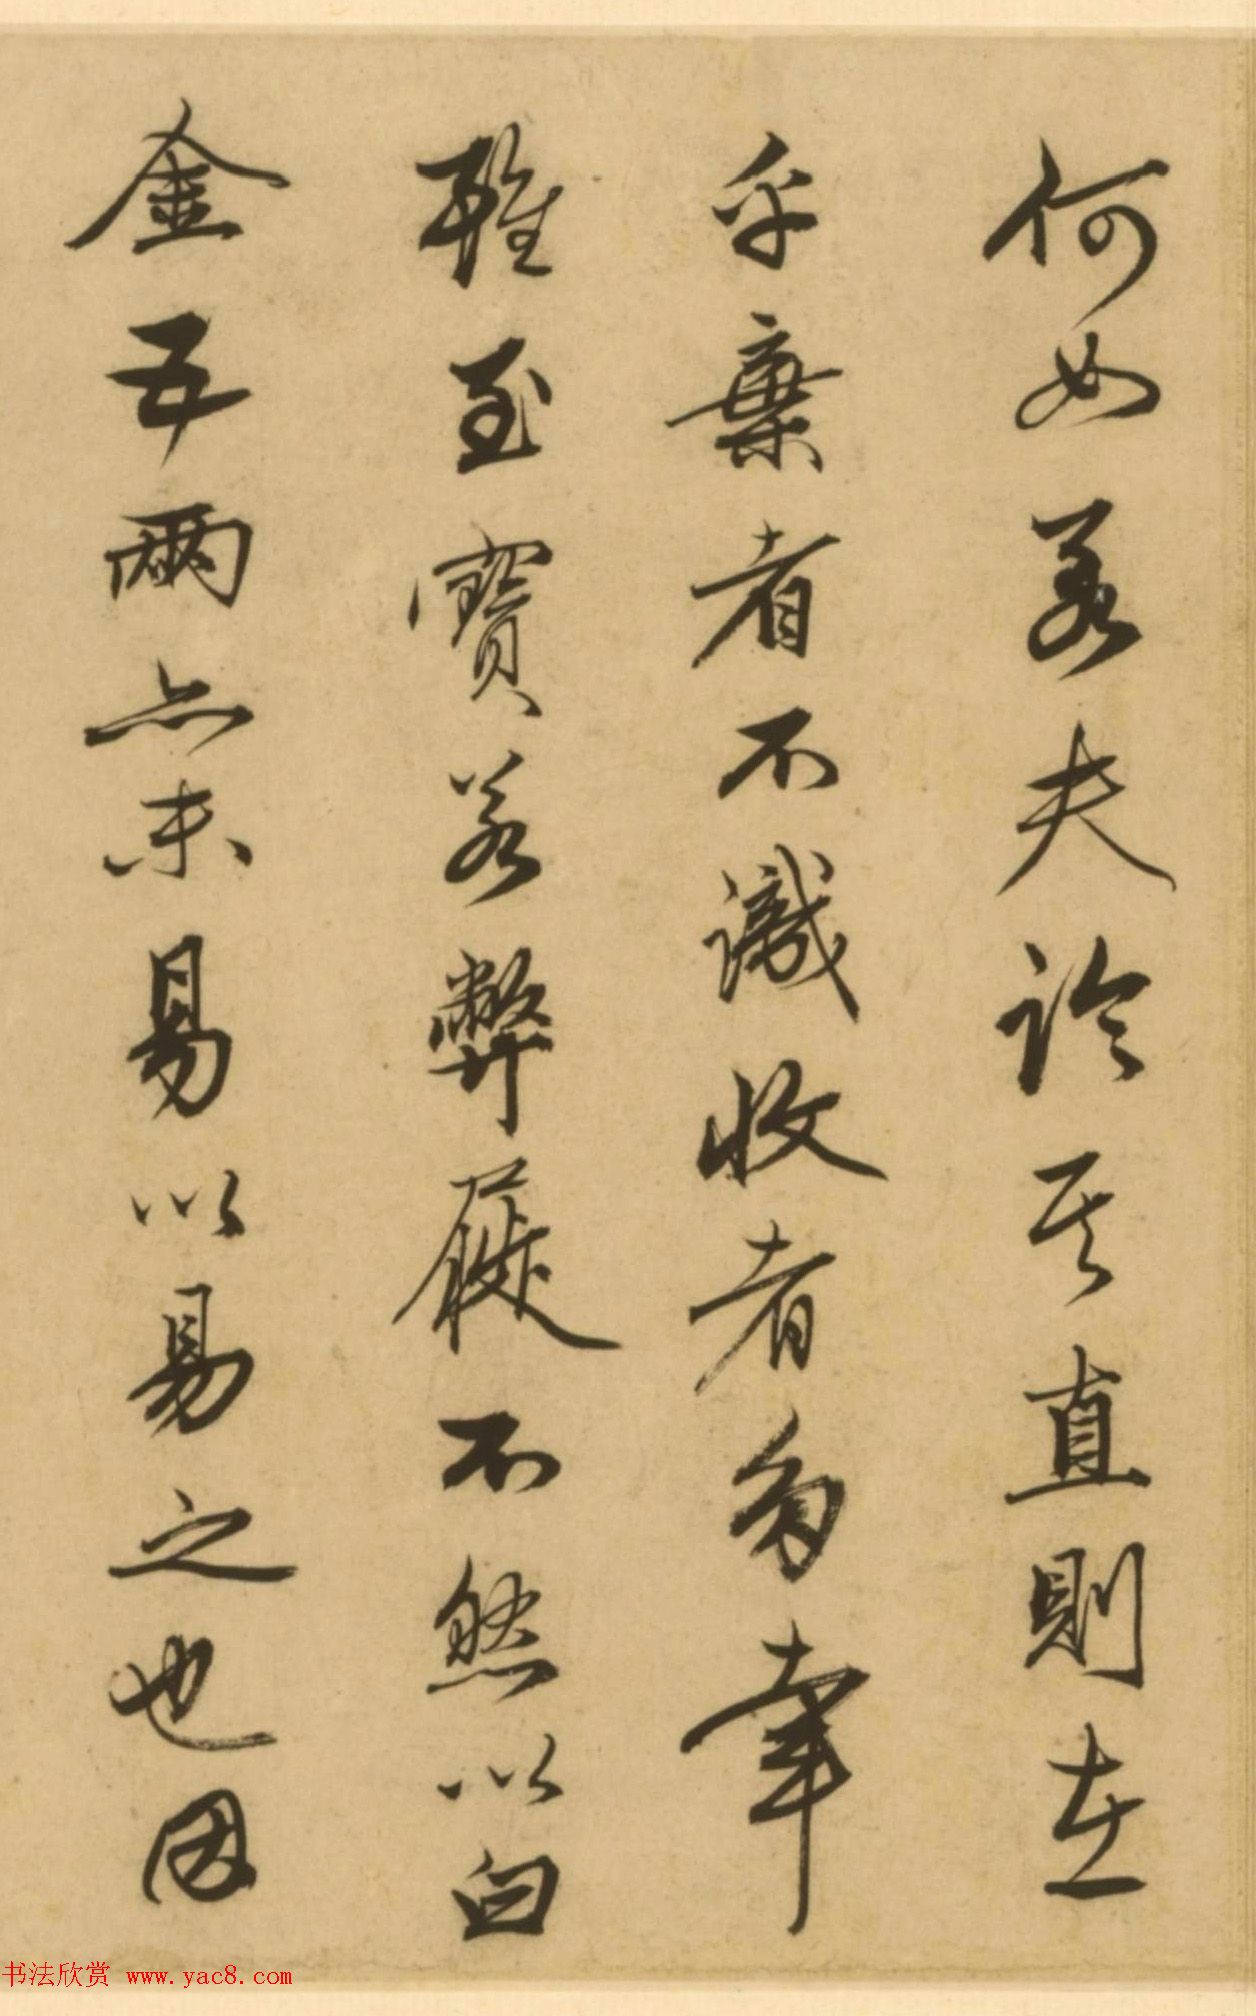 何如若夫論其直則在
乎棄者不識收者多幸
雖至寶若弊屣不然以白
金五兩亦未易以易之也因
书法欣赏 www.yac8.com